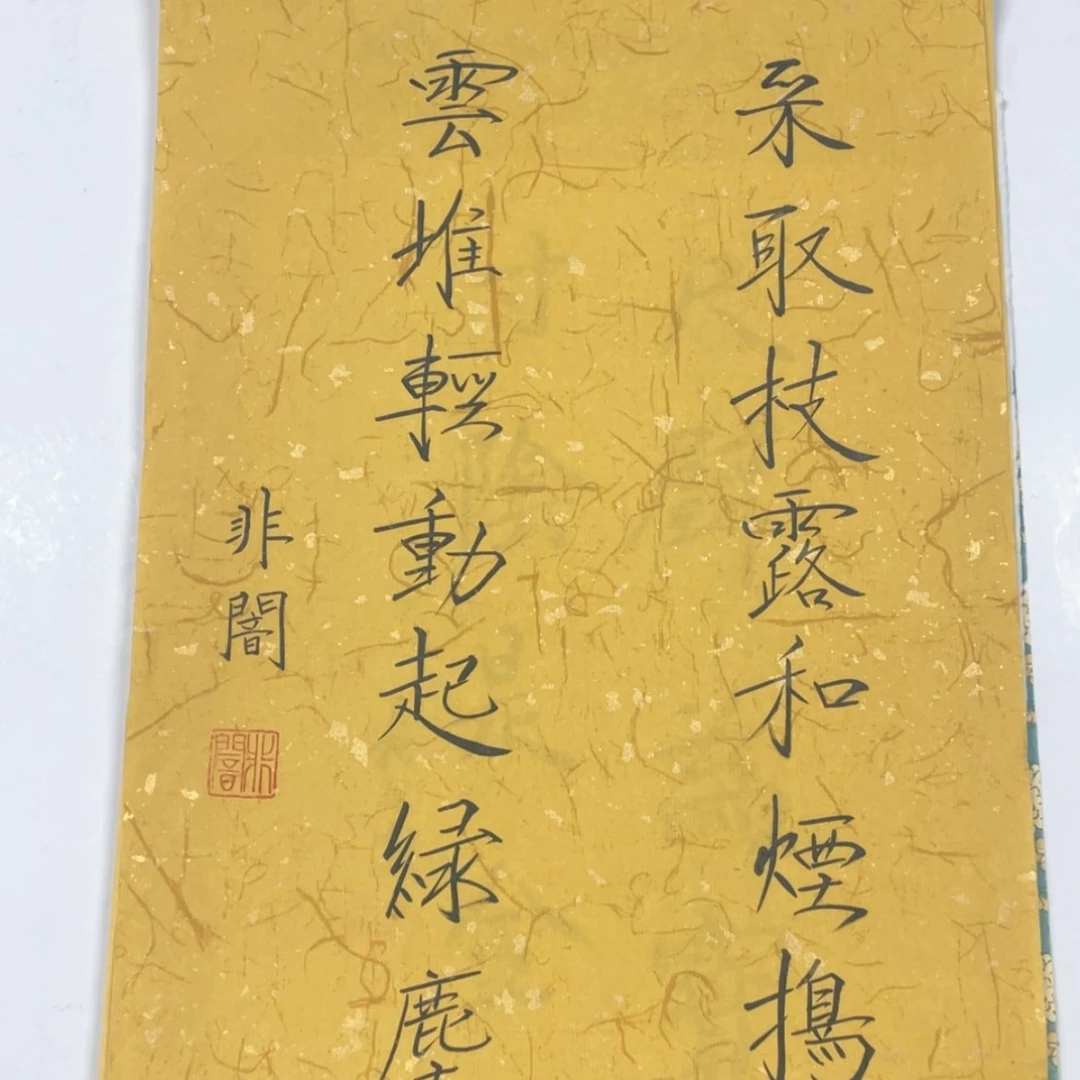 采取技露和煙搗
雲堆輕動起緑塵
非闇
非闇